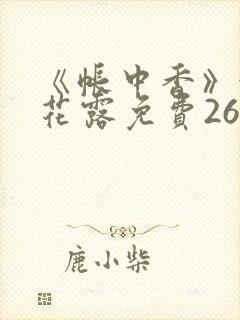 《帳中香》
花露免費26
鹿小柴